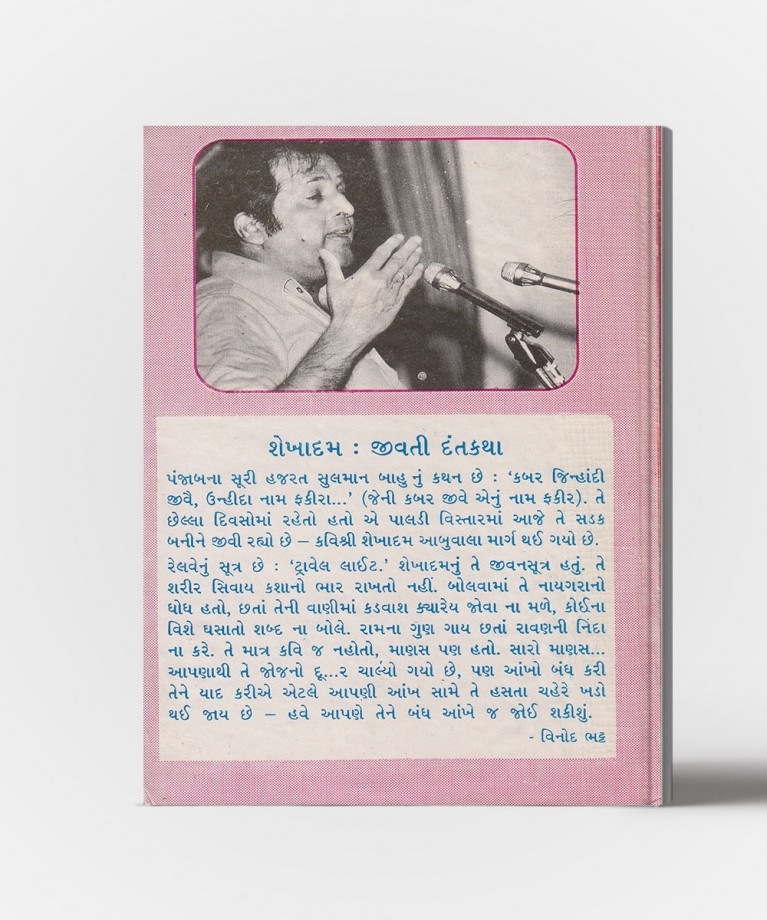 શેખાદમ : જીવતી દંતકથા
પંજાબના સૂરી હજરત સુલમાન બાહુ નું કથન છે : ‘કબર જિન્હાંદી
જીવૈ, ઉન્હીદા નામ ફકીરા...’ (જેની કબર જીવે એનું નામ ફકીર). તે
છેલ્લા દિવસોમાં રહેતો હતો એ પાલડી વિસ્તારમાં આજે તે સડક
બનીને જીવી રહ્યો છે – કવિશ્રી શેખાદમ આબુવાલા માર્ગ થઈ ગયો છે.
રેલવેનું સૂત્ર છે : ‘ટ્રાવેલ લાઈટ.’ શેખાદમનું તે જીવનસૂત્ર હતું. તે
શરીર સિવાય કશાનો ભાર રાખતો નહીં. બોલવામાં તે નાયગરાનો
ધોધ હતો, છતાં તેની વાણીમાં કડવાશ ક્યારેય જોવા ના મળે, કોઈના
વિશે ઘસાતો શબ્દ ના બોલે. રામના ગુણ ગાય છતાં રાવણની નિંદા
ના કરે. તે માત્ર કવિ જ નહોતો, માણસ પણ હતો. સારો માણસ...
આપણાથી તે જોજનો દૂ...ર ચાલ્યો ગયો છે, પણ આંખો બંધ કરી
તેને યાદ કરીએ એટલે આપણી આંખ સામે તે હસતા ચહેરે ખડો
થઈ જાય છે – હવે આપણે તેને બંધ આંખે જ જોઈ શકીશું.
- વિનોદ ભટ્ટ